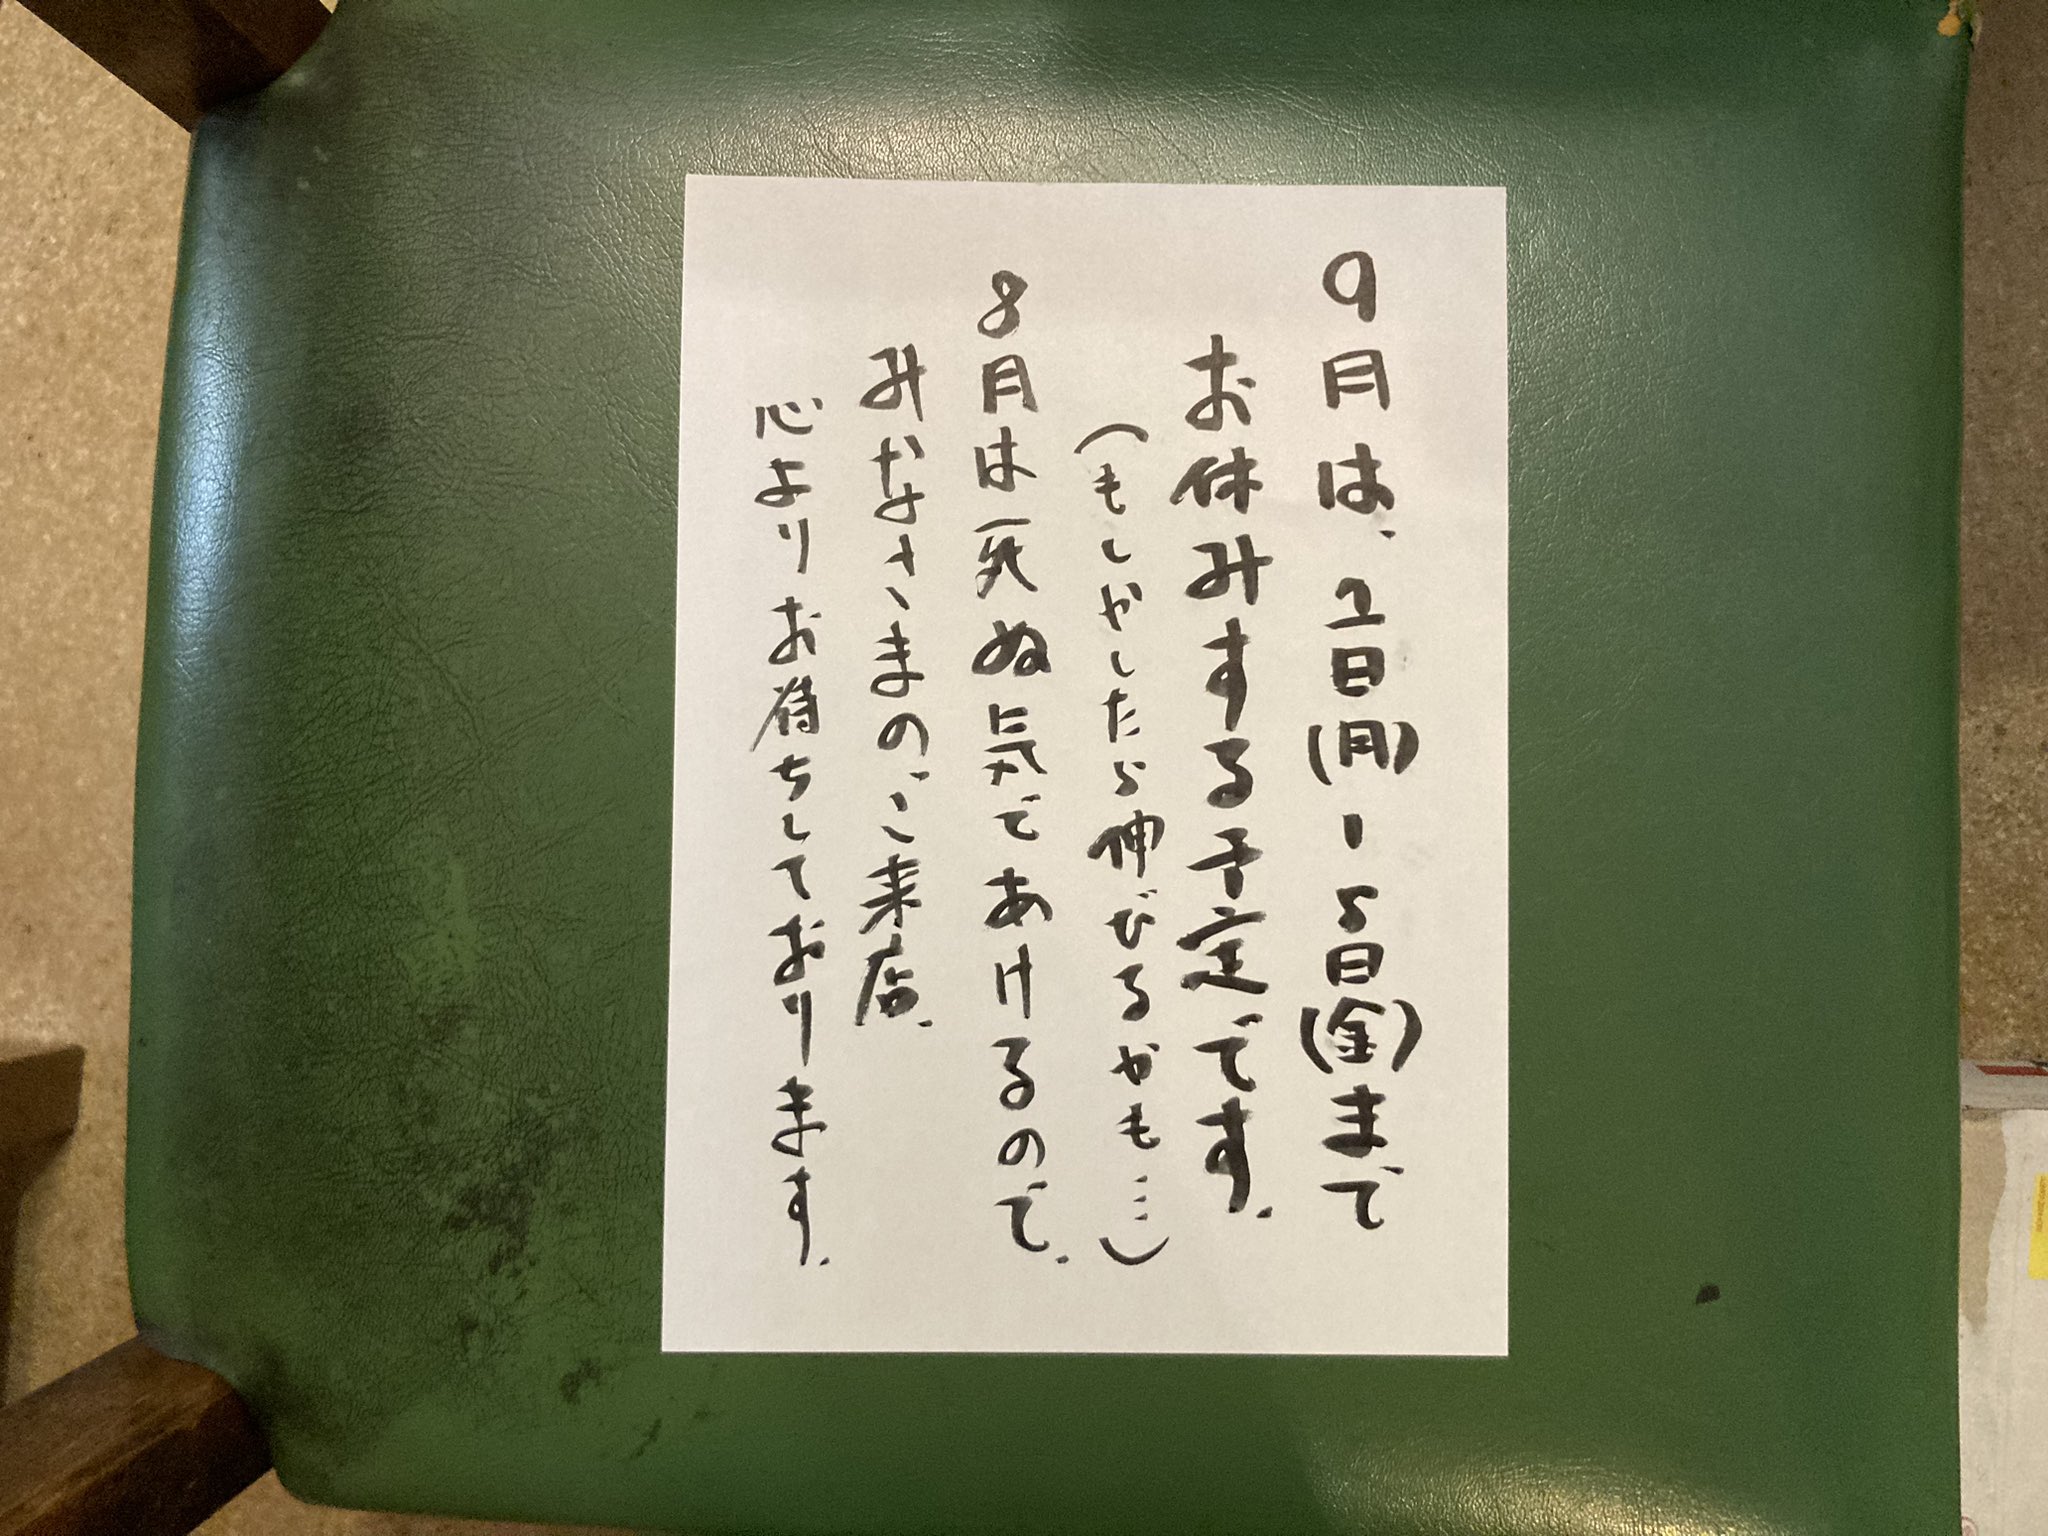 9月は、1日(月)-5日(金)まで
お休みする予定です。
(もしやしたら伸びるかも……)
8月は死ぬ気であけるので、
みなさまのご来店、
心よりお待ちしております。